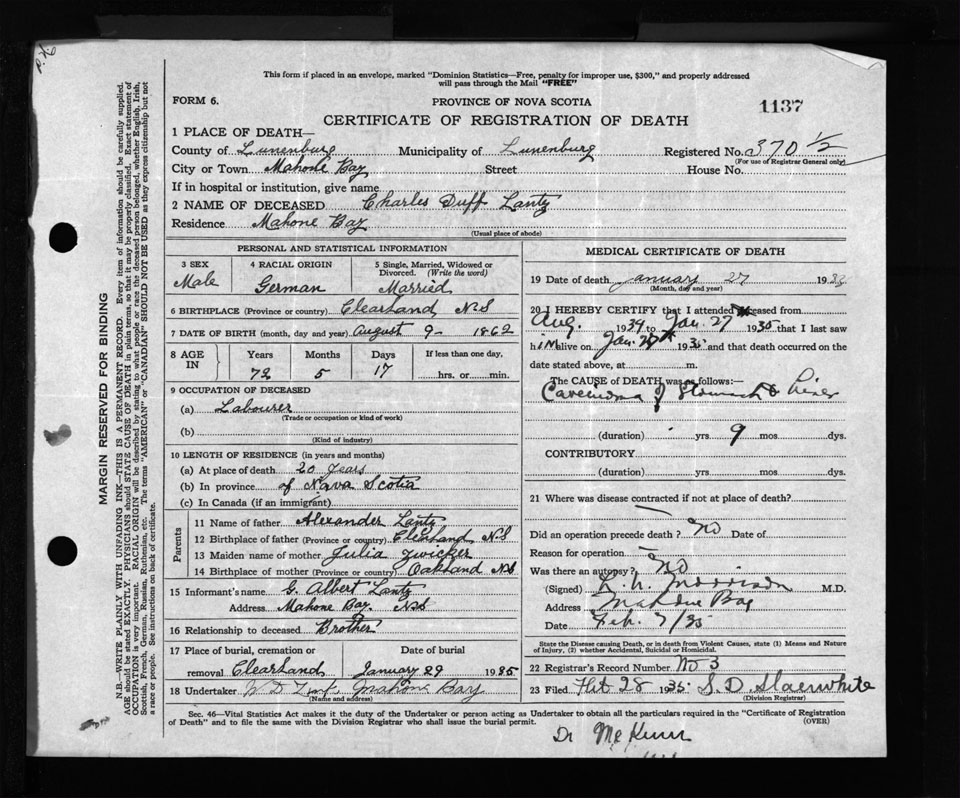 This form if placed in an envelope, marked "Dominion Statistics—Free, penalty for improper use, $300," and properly addressed
will pass through the Mail "FREE"
FORM 6.
PROVINCE OF NOVA SCOTIA
1137
CERTIFICATE OF REGISTRATION OF DEATH
1 PLACE OF DEATH—
County of Lunenburg Municipality of Lunenburg Registered No. 370 1/2
(For use of Registrar General only)
City or Town Mahone Bay Street House No.
If in hospital or institution, give name
2 NAME OF DECEASED Charles Duff Lantz
Residence Mahone Bay
(Usual place of abode)
PERSONAL AND STATISTICAL INFORMATION
3 SEX 4 RACIAL ORIGIN 5 Single, Married, Widowed or
Divorced. (Write the word)
Male German Married
6 BIRTHPLACE (Province or country) Clearland N.S
7 DATE OF BIRTH (month, day and year) August 9- 1862
8 AGE IN Years Months Days If less than one day,
72 5 17 hrs. or min.
9 OCCUPATION OF DECEASED
(a) Labourer
(Trade or occupation or kind of work)
(b)
(Kind of industry)
10 LENGTH OF RESIDENCE (in years and months)
(a) At place of death 20 years
(b) In province of Nova Scotia
(c) In Canada (if an immigrant)
Parents
11 Name of father Alexander Lantz
12 Birthplace of father (Province or country) Clearland N.S
13 Maiden name of mother Julia Zwicker
14 Birthplace of mother (Province or country) Oakland NS
15 Informant's name G. Albert Lantz
Address Mahone Bay. NS
16 Relationship to deceased Brother
17 Place of burial, cremation or Date of burial
removal Clearland January 29 1935
18 Undertaker Mahone Bay
(Name and address)
MEDICAL CERTIFICATE OF DEATH
19 Date of death January 27 19
(Month, day and year)
20 I HEREBY CERTIFY that I attended deceased from
Aug. 1934 to Jan. 27 1935 that I last saw
him alive on Jan. 1935 and that death occurred on the
date stated above, at m.
The CAUSE of DEATH was as follows:—
Carcinoma of Stomach & Liver
(duration) yrs. 9 mos. dys.
CONTRIBUTORY
(duration) yrs. mos. dys.
21 Where was disease contracted if not at place of death?
Did an operation precede death? No Date of
Reason for operation
Was there an autopsy? No
(Signed) Morrison M.D.
Address Mahone Bay
Date Feb. 7/35
State the Disease causing Death, or in death from Violent Causes, state (1) Means and Nature
of Injury, (2) whether Accidental, Suicidal or Homicidal.
22 Registrar's Record Number No 3
23 Filed 28 1935 S. D Slaenwhite
(Division Registrar)
Sec. 46—Vital Statistics Act makes it the duty of the Undertaker or person acting as Undertaker to obtain all the particulars required in the "Certificate of Registration
of Death" and to file the same with the Division Registrar who shall issue the burial permit.
(OVER)
Dr
MARGIN RESERVED FOR BINDING
N.B.—WRITE PLAINLY WITH UNFADING INK—THIS IS A PERMANENT RECORD. Every item of information should be carefully supplied.
AGE should be stated EXACTLY. PHYSICIANS should STATE CAUSE OF DEATH in plain terms, so that it may be properly classified. Exact statement of
OCCUPATION is very important. RACIAL ORIGIN will be described by stating to what people or race the deceased person belonged, whether English, Irish,
Scottish, French, German, Russian, Ruthenian, etc. The terms "AMERICAN" or "CANADIAN" SHOULD NOT BE USED as they express citizenship but not
a race or people. See instructions on back of certificate.